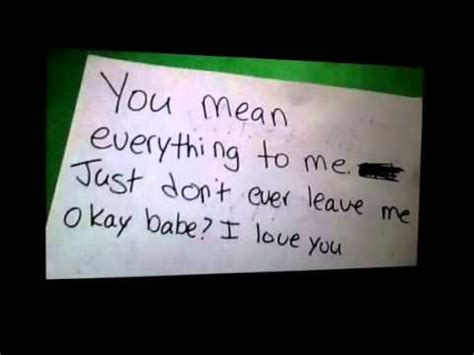 You mean
everything to me.
Just don't ever leave me
okay babe? I love you